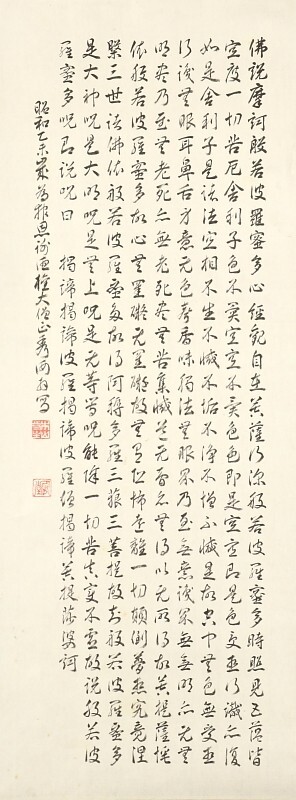 佛説摩訶般若波羅蜜多心經觀自在菩薩行深般若波羅蜜多時照見五蘊皆
空度一切苦厄舍利子色不異空空不異色色即是空空即是色受想行識亦復
如是舍利子是諸法空相不生不滅不垢不淨不增不減是故空中無色無受想
行識無眼耳鼻舌身意无色聲香味觸法無眼界乃至無意識界無無明亦无無
明盡乃至無老死亦無老死盡無苦集滅道无智亦無得以无所得故菩提薩埵
依般若波羅蜜多故心無罣礙无罣礙故無有恐怖遠離一切顛倒夢想究竟涅
槃三世諸佛依般若波羅蜜多故得阿耨多羅三藐三菩提故知般若波羅蜜多
是大神呪是大明呪是無上呪是无等等呪能除一切苦真實不虛故説般若波
羅蜜多呪即説呪曰 揭諦揭諦波羅揭諦波羅僧揭諦菩提薩婆訶
昭和乙未歳為報恩 大僧正秀 写